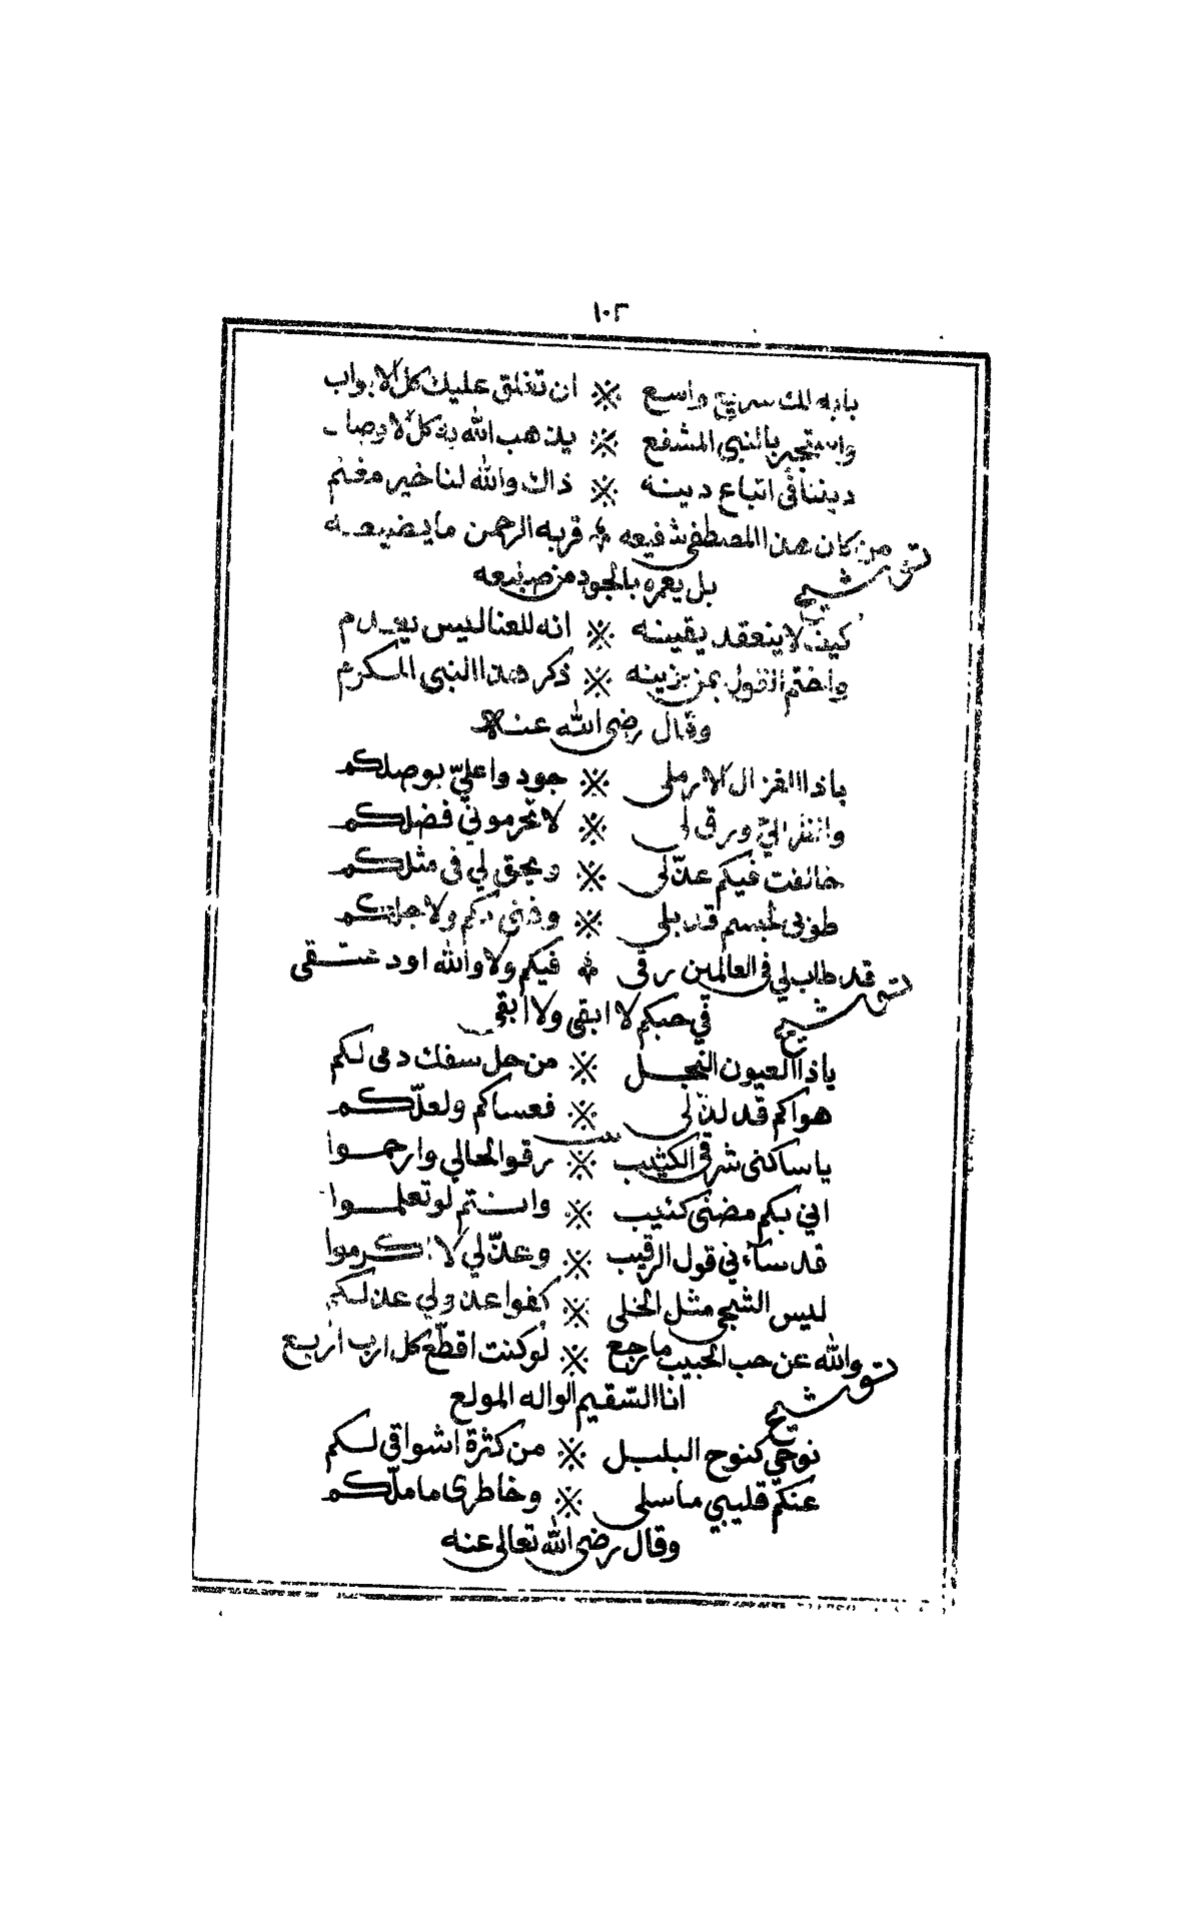 ١٠٢
بابه لك سريع واسع ※ ان تغلق عليك كل الابواب
واستجير بالنبي المشفع ※ يذهب الله به كل لاوصاب
ديننا في اتباع دينه ※ ذاك والله لنا خير مغنم
توشيح
من كان هذا المصطفى شفيعه ※ قربه الرحمن ما يضيعه
بل يعمره بالجود من صنيعه
كيف لا ينعقد يقينه ※ انه للعنا ليس يعدم
واختم القول بمن يزينه ※ ذكر هذا النبي المكرم
وقال رضى الله عنه
ياذا الغزال الارملى ※ جودوا عليّ بوصلكم
وانظر اليّ ورق لي ※ لا تحرموني فضلكم
خالفت فيكم عذّلى ※ ويحق لي فى مثلكم
طوبى لجسم قد بلى ※ وذنى لكم ولاجلكم
قد طاب لي فى العالمين رقى ※ فيكم ولا والله اود عتقى
توشيح
في حبكم لا ابقى ولا ابقى
ياذا العيون النجل ※ من حل سفك دمى لكم
هواكم قد لذّ لى ※ فعساكم ولعلّكم
يا ساكنى شرقى الكثيب ※ رقوا لحالي وارحموا
اني بكم مضنى كئيب ※ وانتم لو تعلموا
قد ساءني قول الرقيب ※ وعذّلي لا اكرموا
ليس الشجي مثل الخلى ※ كفوا عذولي عذلكم
والله عن حب الحبيب ما رجع ※ لو كنت اقطّع كل ارب اربع
توشيح
انا السّقيم الواله المولع
نوحي كنوح البلبل ※ من كثرة اشواقى لكم
عنكم قليبي ما سلى ※ وخاطرى ما ملّكم
وقال رضى الله تعالى عنه